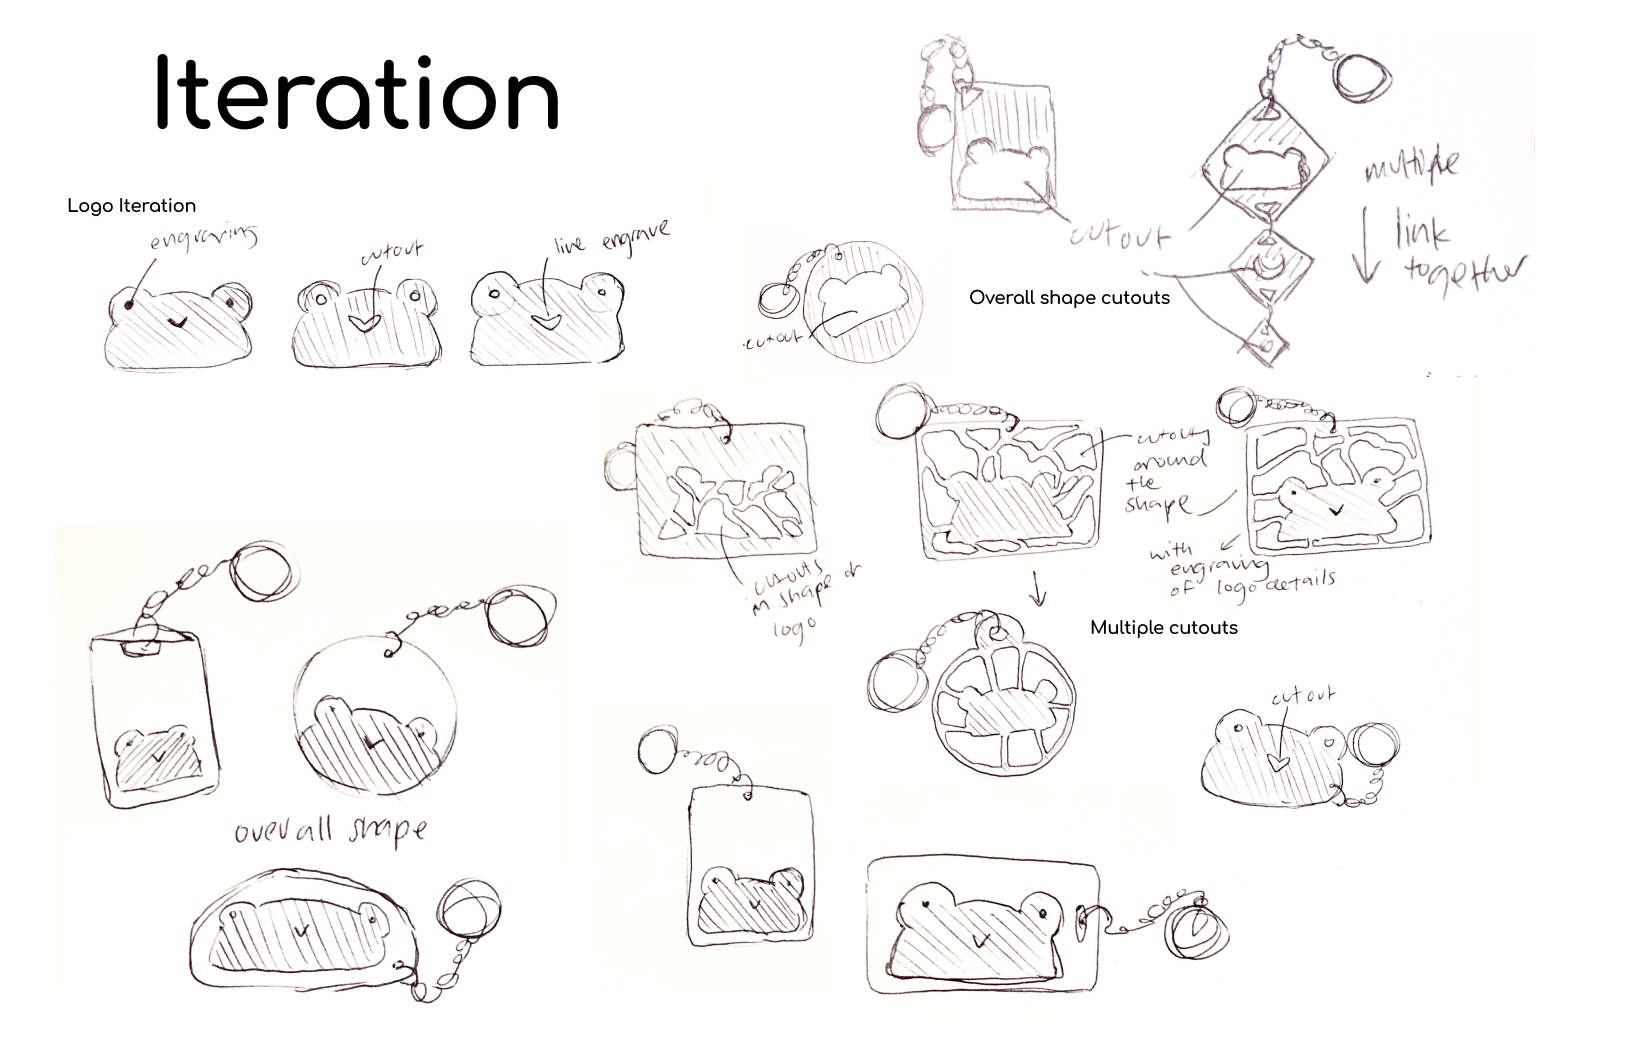 Iteration
Logo Iteration
engraving
cutout
line engrave
cutout
cutout
multiple
link
together
Overall shape cutouts
cutouts
in shape of
logo
cutouts
around
the
shape
with
engraving
of logo details
Multiple cutouts
cutout
overall shape